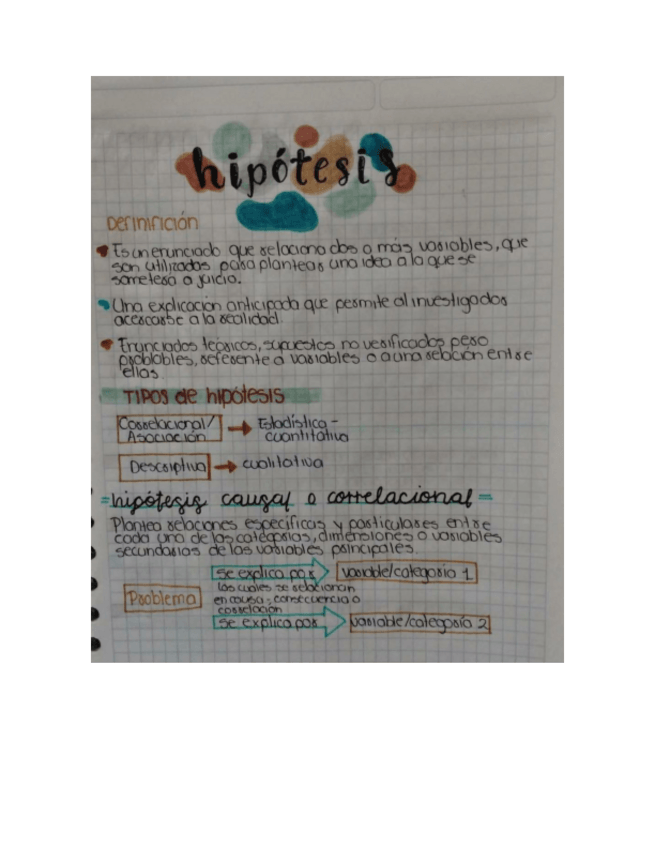 hipótesis
Definifición
Es un enunciado que relaciona dos o más variables, que
son utilizadas para plantear una idea a la que se
someterá a juicio.
Una explicación anticipada que permite al investigador
acercarse a la realidad.
Enunciados teóricos, supuestos no verificados pero
problables, referente a variables o a una relación entre
ellas.
TIPOS de hipótesis
Correlacional/
Asociación
Estadística-
cuantitativa
Descriptiva
cualitativa
=hipótesis causal o correlacional=
Plantea relaciones específicas y particulares entre
cada una de las categorías, dimensiones o variables
secundarias de las variables principales.
se explica por variable/categoría 1
Problema
los cuales se relacionan
en causa, consecuencia o
correlación
se explica por variable/categoría 2